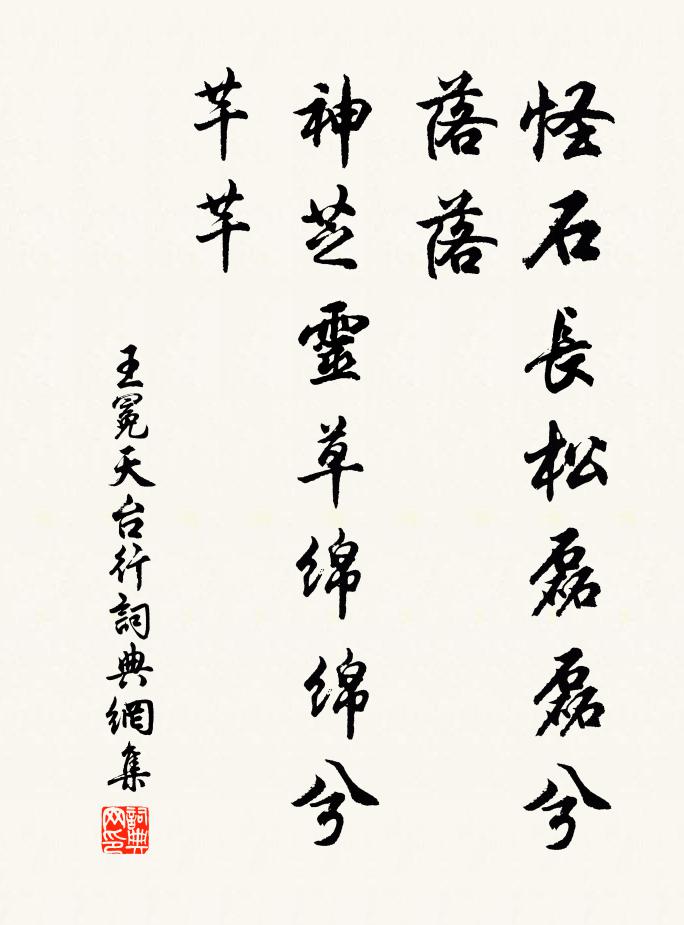 怪石長松磊磊兮
落落
神芝靈草绵绵兮
芊芊
王冕天台行詞典網集
詞典网印